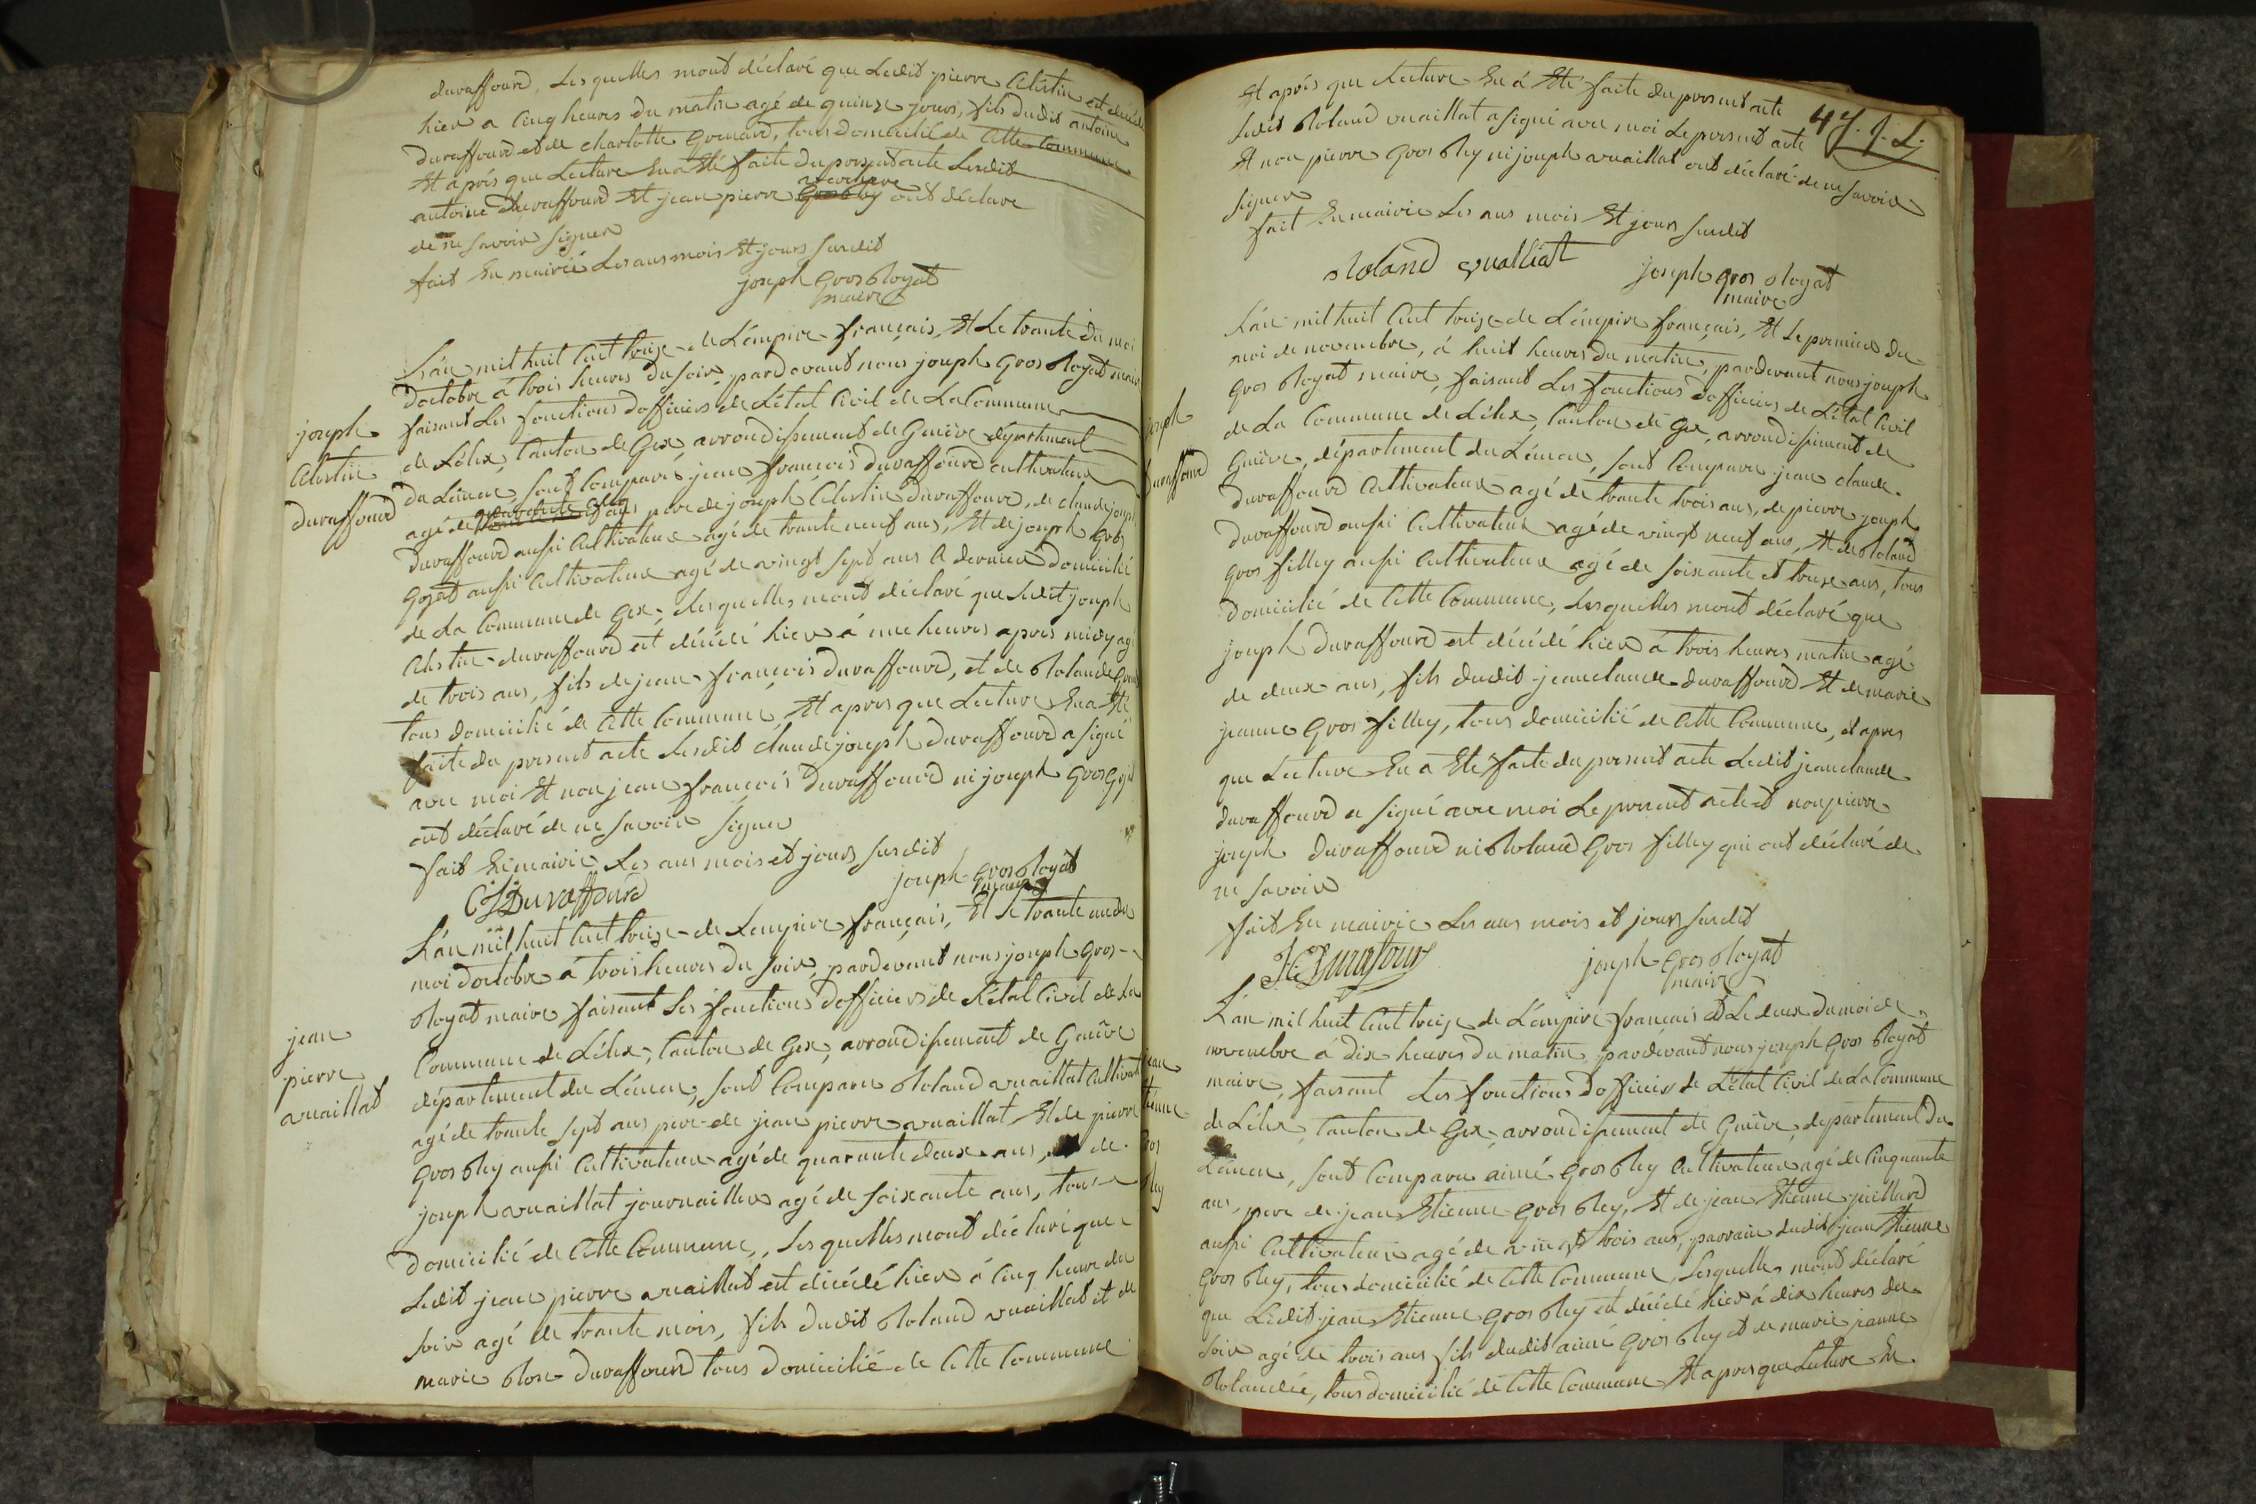 duraffourd, Lesquelles mont déclaré que Ledit pierre Celestin est décédé
hier a Cinq heures du matin agé de quinze jours, fils dudit antoine
duraffourd et de charlotte Grenard, tous domicilié de Cette Commune
Et aprés que Lecture En a Eté faite du present acte Lesdit
antoine Duraffourd Et jean pierre ont déclare
de ne savoir signer
fait En mairie Les ans mois Et jours susdit
joseph Gros Royat
maire
joseph
Celestin
Duraffourd
L'án mil huit Cent treize de L'émpire français, Et Le trante du moi
Doctobre á trois heures du soir, pardevant nous joseph Gros Royat maire
faisant Les fonctions dofficiers de L'état Civil de La Commune
de Léléx, Canton de Gex, arrondissement de Genève département
du Léman, sont Comparus jean françois duraffourd cultivateur
agé de quarante ans pere de joseph Celestin duraffourd, de claude joseph
Duraffourd aussi Cultivateur agé de trante neuf ans, Et de joseph Gros
Gojat aussi Cultivateur agé de vingt sept ans Ce dernier domicilié
de La Commune de Gex, Lesquelles mont déclaré que Ledit joseph
Celestin duraffourd est décédé hier á une heures aprés midy agé
de trois ans, fils de jean françois Duraffourd, et de Rolande Gros
tous domicilié de Cette Commune, Et aprés que Lecture En a Eté
faite du present acte Lesdit claude joseph Duraffourd a signé
avec moi Et non jean françois Duraffourd ni joseph Gros Gojat
ont déclaré de ne savoir signer
fait En mairie Les ans mois et jours susdit
CJ Duraffourd
joseph Gros Royat
maire
jean
pierre
vuaillat
L'án mil huit Cent treize de L'empire français, Et Le trante un du
moi doctobre á trois heures du soir, pardevant nous joseph Gros
Royat maire faisant Les fonctions dofficiers de L'état Civil de La
Commune de Léléx, Canton de Gex, arrondissement de Genêve
département du Léman, sont Comparu Roland vuaillat Cultivat
agé de trante sept ans pere de jean pierre vuaillat Et de pierre
Gros Rey aussi Cultivateur agé de quarante deux ans, de
joseph vuaillat journaillier agé de soixante ans, tous
domicilié de Cette Commune, Lesquelles mont déclaré que
Ledit jean pierre vuaillat est décédé hier á Cinq heure du
soir agé de trante mois, fils dudit Roland vuaillat et de
marie Rose Duraffourd tous domicilié de Cette Commune
47. J. L.
Et aprés que Lecture En á Eté faite du present acte
Ledit Roland vuaillat a signé avec moi Le present acte
Et non pierre Gros Rey ni joseph vuaillat ont déclaré de ne savoir
signer
fait En mairie Les ans mois Et jours susdit
Roland vualliat
joseph gros Royat
maire
joseph
Duraffourd
L'án mil huit Cent treize de L'émpire français, Et Le premier du
moi de novembre, á huit heures du matin, pardevant nous joseph
Gros Royat maire, faisant Les fonctions dofficiers de L'état Civil
de La Commune de Léléx, Canton de Gex, arrondissement de
Genève, département du Léman, sont Comparu jean claude
Duraffourd Cultivateur agé de trante trois ans, de pierre joseph
Duraffourd aussi Cultivateur agé de vingt neuf ans, Et de Roland
Gros filley aussi Cultivateur agé de soixante et treize ans, tous
Domicilié de Cette Commune, Lesquelles mont déclaré que
joseph Duraffourd est décédé hier á trois heures matin agé
de deux ans, fils dudit jean claude duraffourd Et de marie
jeanne Gros filley, tous domicilié de Cette Commune, et apres
que Lecture En a Eté faite du present acte Ledit jean claude
duraffourd a signé avec moi Le present acte et non pierre
joseph Duraffourd ni Roland Gros filley qui ont déclaré de
ne savoir
fait En mairie Les ans mois et jours susdit
joseph Gros Royat
maire
jean
tienne
Gros
Rey
L'án mil huit Cent treize de L'émpire français Et Le deux du moi de
novembre á dix heures du matin, pardevant nous joseph Gros Royat
maire, faisant Les fonctions dofficiers de L'état Civil de La Commune
de Léléx, Canton de Gex, arrondissement de Genève, département du
Léman, sont Comparu aimé Gros Rey Cultivateur agé de Cinquante
ans, pere de jean Etienne Gros Rey, Et de jean Etienne juillard
aussi Cultivateur agé de vingt trois ans, parrain dudit jean Etienne
Gros Rey, tous domicilié de Cette Commune, Lesquelles mont déclaré
que Ledit jean Etienne Gros Rey est décédé hier á dix heures du
soir agé de trois ans fils dudit aimé Gros Rey et de marie jeanne
Rolandée, tous domicilié de Cette Commune Et apres que Lecture En